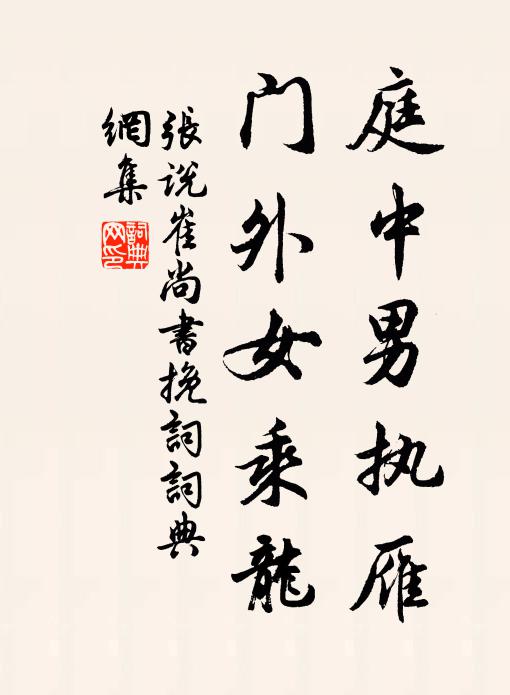 庭中男执雁
门外女乘龍
張说崔尚書挽詞詞典
網集
詞典网印